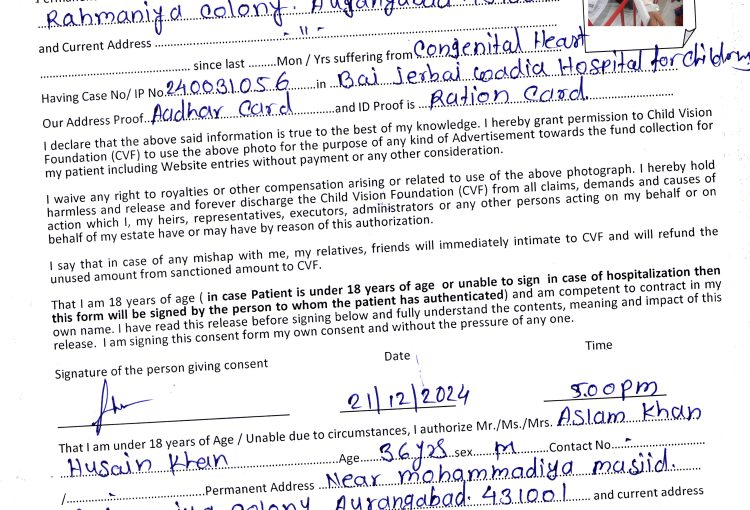 Rahmaniya colony. Aurangabad
and Current Address ............ - 11 - ............
............ since last ........Mon / Yrs suffering from Congenital Heart
Having Case No/ IP No. 240031056 ......in .. Bai Jerbai Wadia Hospital for Children
Our Address Proof.. Aadhar Card ............and ID Proof is .. Ration Card. ............
I declare that the above said information is true to the best of my knowledge. I hereby grant permission to Child Vision
Foundation (CVF) to use the above photo for the purpose of any kind of Advertisement towards the fund collection for
my patient including Website entries without payment or any other consideration.
I waive any right to royalties or other compensation arising or related to use of the above photograph. I hereby hold
harmless and release and forever discharge the Child Vision Foundation (CVF) from all claims, demands and causes of
action which I, my heirs, representatives, executors, administrators or any other persons acting on my behalf or on
behalf of my estate have or may have by reason of this authorization.
I say that in case of any mishap with me, my relatives, friends will immediately intimate to CVF and will refund the
unused amount from sanctioned amount to CVF.
That I am 18 years of age ( in case Patient is under 18 years of age or unable to sign in case of hospitalization then
this form will be signed by the person to whom the patient has authenticated) and am competent to contract in my
own name. I have read this release before signing below and fully understand the contents, meaning and impact of this
release. I am signing this consent form my own consent and without the pressure of any one.
Signature of the person giving consent Date Time
21/12/2024 5.00 pm
That I am under 18 years of Age / Unable due to circumstances, I authorize Mr./Ms./Mrs. Aslam Khan
Husain Khan ............Age.... 36 yrs .sex... M ......Contact No.... - ............
/............Permanent Address .. Near mohammadiya masjid.
colony Aurangabad. 431001 and current address